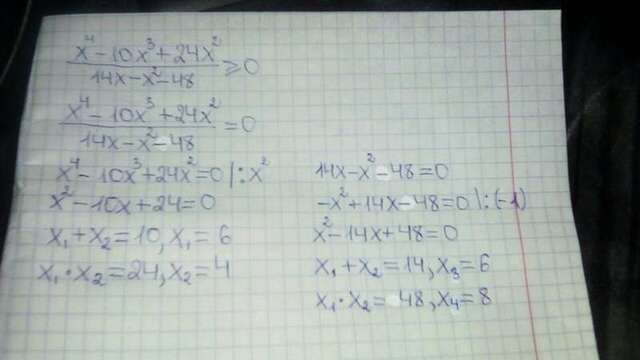 x⁴ - 10x³ + 24x²
14x - x² - 48 ⩾ 0
x⁴ - 10x³ + 24x²
14x - x² - 48 = 0
x⁴ - 10x³ + 24x² = 0 | : x²
x² - 10x + 24 = 0
x₁ + x₂ = 10, x₁ = 6
x₁ · x₂ = 24, x₂ = 4
14x - x² - 48 = 0
-x² + 14x - 48 = 0 | : (-1)
x² - 14x + 48 = 0
x₁ + x₂ = 14, x₃ = 6
x₁ · x₂ = 48, x₄ = 8